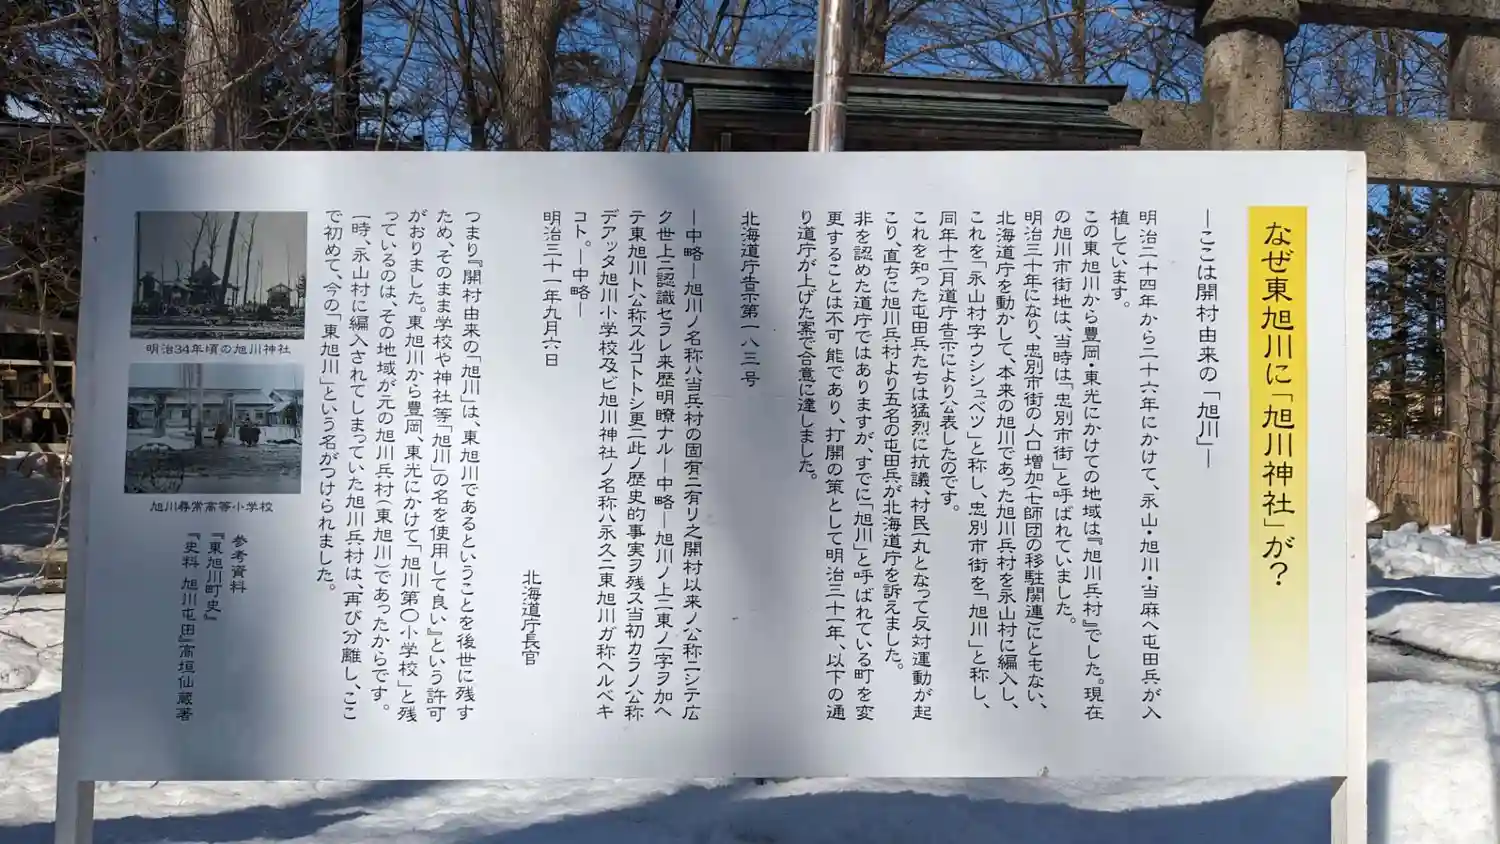 なぜ東旭川に「旭川神社」が？
―ここは開村由来の「旭川」―
明治二十四年から二十六年にかけて、永山・旭川・当麻へ屯田兵が入
植しています。
この東旭川から豊岡・東光にかけての地域は『旭川兵村』でした。現在
の旭川市街地は、当時は「忠別市街」と呼ばれていました。
明治三十年になり、忠別市街の人口増加（七師団の移駐関連）にともない、
北海道庁を動かして、本来の旭川であった旭川兵村を永山村に編入し、
これを「永山村字ウシシュベツ」と称し、忠別市街を「旭川」と称し、
同年十二月道庁告示により公表したのです。
これを知った屯田兵たちは猛烈に抗議、村民一丸となって反対運動が起
こり、直ちに旭川兵村より五名の屯田兵が北海道庁を訴えました。
非を認めた道庁ではありますが、すでに「旭川」と呼ばれている町を変
更することは不可能であり、打開の策として明治三十一年、以下の通
り道庁が上げた案で合意に達しました。
北海道庁告示第一八三号
―中略―旭川ノ名称ハ当兵村の固有ニ有リ之開村以来ノ公称ニシテ広
ク世上ニ認識セラレ来歴明瞭ナル―中略―旭川ノ上ニ東ノ一字ヲ加ヘ
テ東旭川ト公称スルコトトシ更ニ此ノ歴史的事実ヲ残ス当初カラノ公称
デアッタ旭川小学校及ビ旭川神社ノ名称ハ永久ニ東旭川ガ称ヘルベキ
コト。―中略―
明治三十一年九月六日
北海道庁長官
つまり『開村由来の「旭川」は、東旭川であるということを後世に残す
ため、そのまま学校や神社等「旭川」の名を使用して良い』という許可
がおりました。東旭川から豊岡、東光にかけて「旭川第〇小学校」と残
っているのは、その地域が元の旭川兵村（東旭川）であったからです。
一時、永山村に編入されてしまっていた旭川兵村は、再び分離し、ここ
で初めて、今の「東旭川」という名がつけられました。
明治34年頃の旭川神社
旭川尋常高等小学校
参考資料
『東旭川町史』
『史料 旭川屯田』高垣仙蔵著